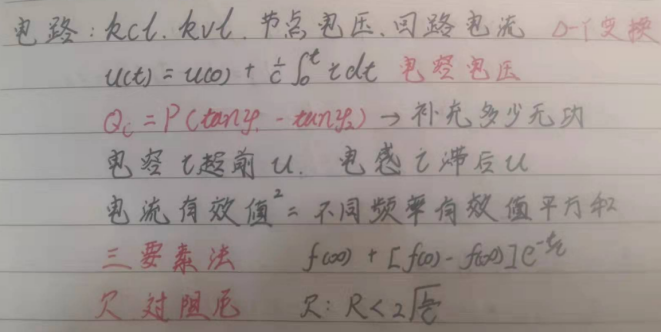 电路: kcl. kvl. 节点电压. 回路电流 Δ-Y变换
u(t) = u(0) + 1/c ∫₀ᵗ i dt 电容电压
Qc = P(tanφ₁ - tanφ₂) → 补充多少无功
电容 i 超前 u. 电感 i 滞后 u
电流有效值² = 不同频率有效值平方和
三要素法 f(∞) + [f(0) - f(∞)]e^(-t/τ)
欠 对阻尼 欠: R < 2√(L/C)